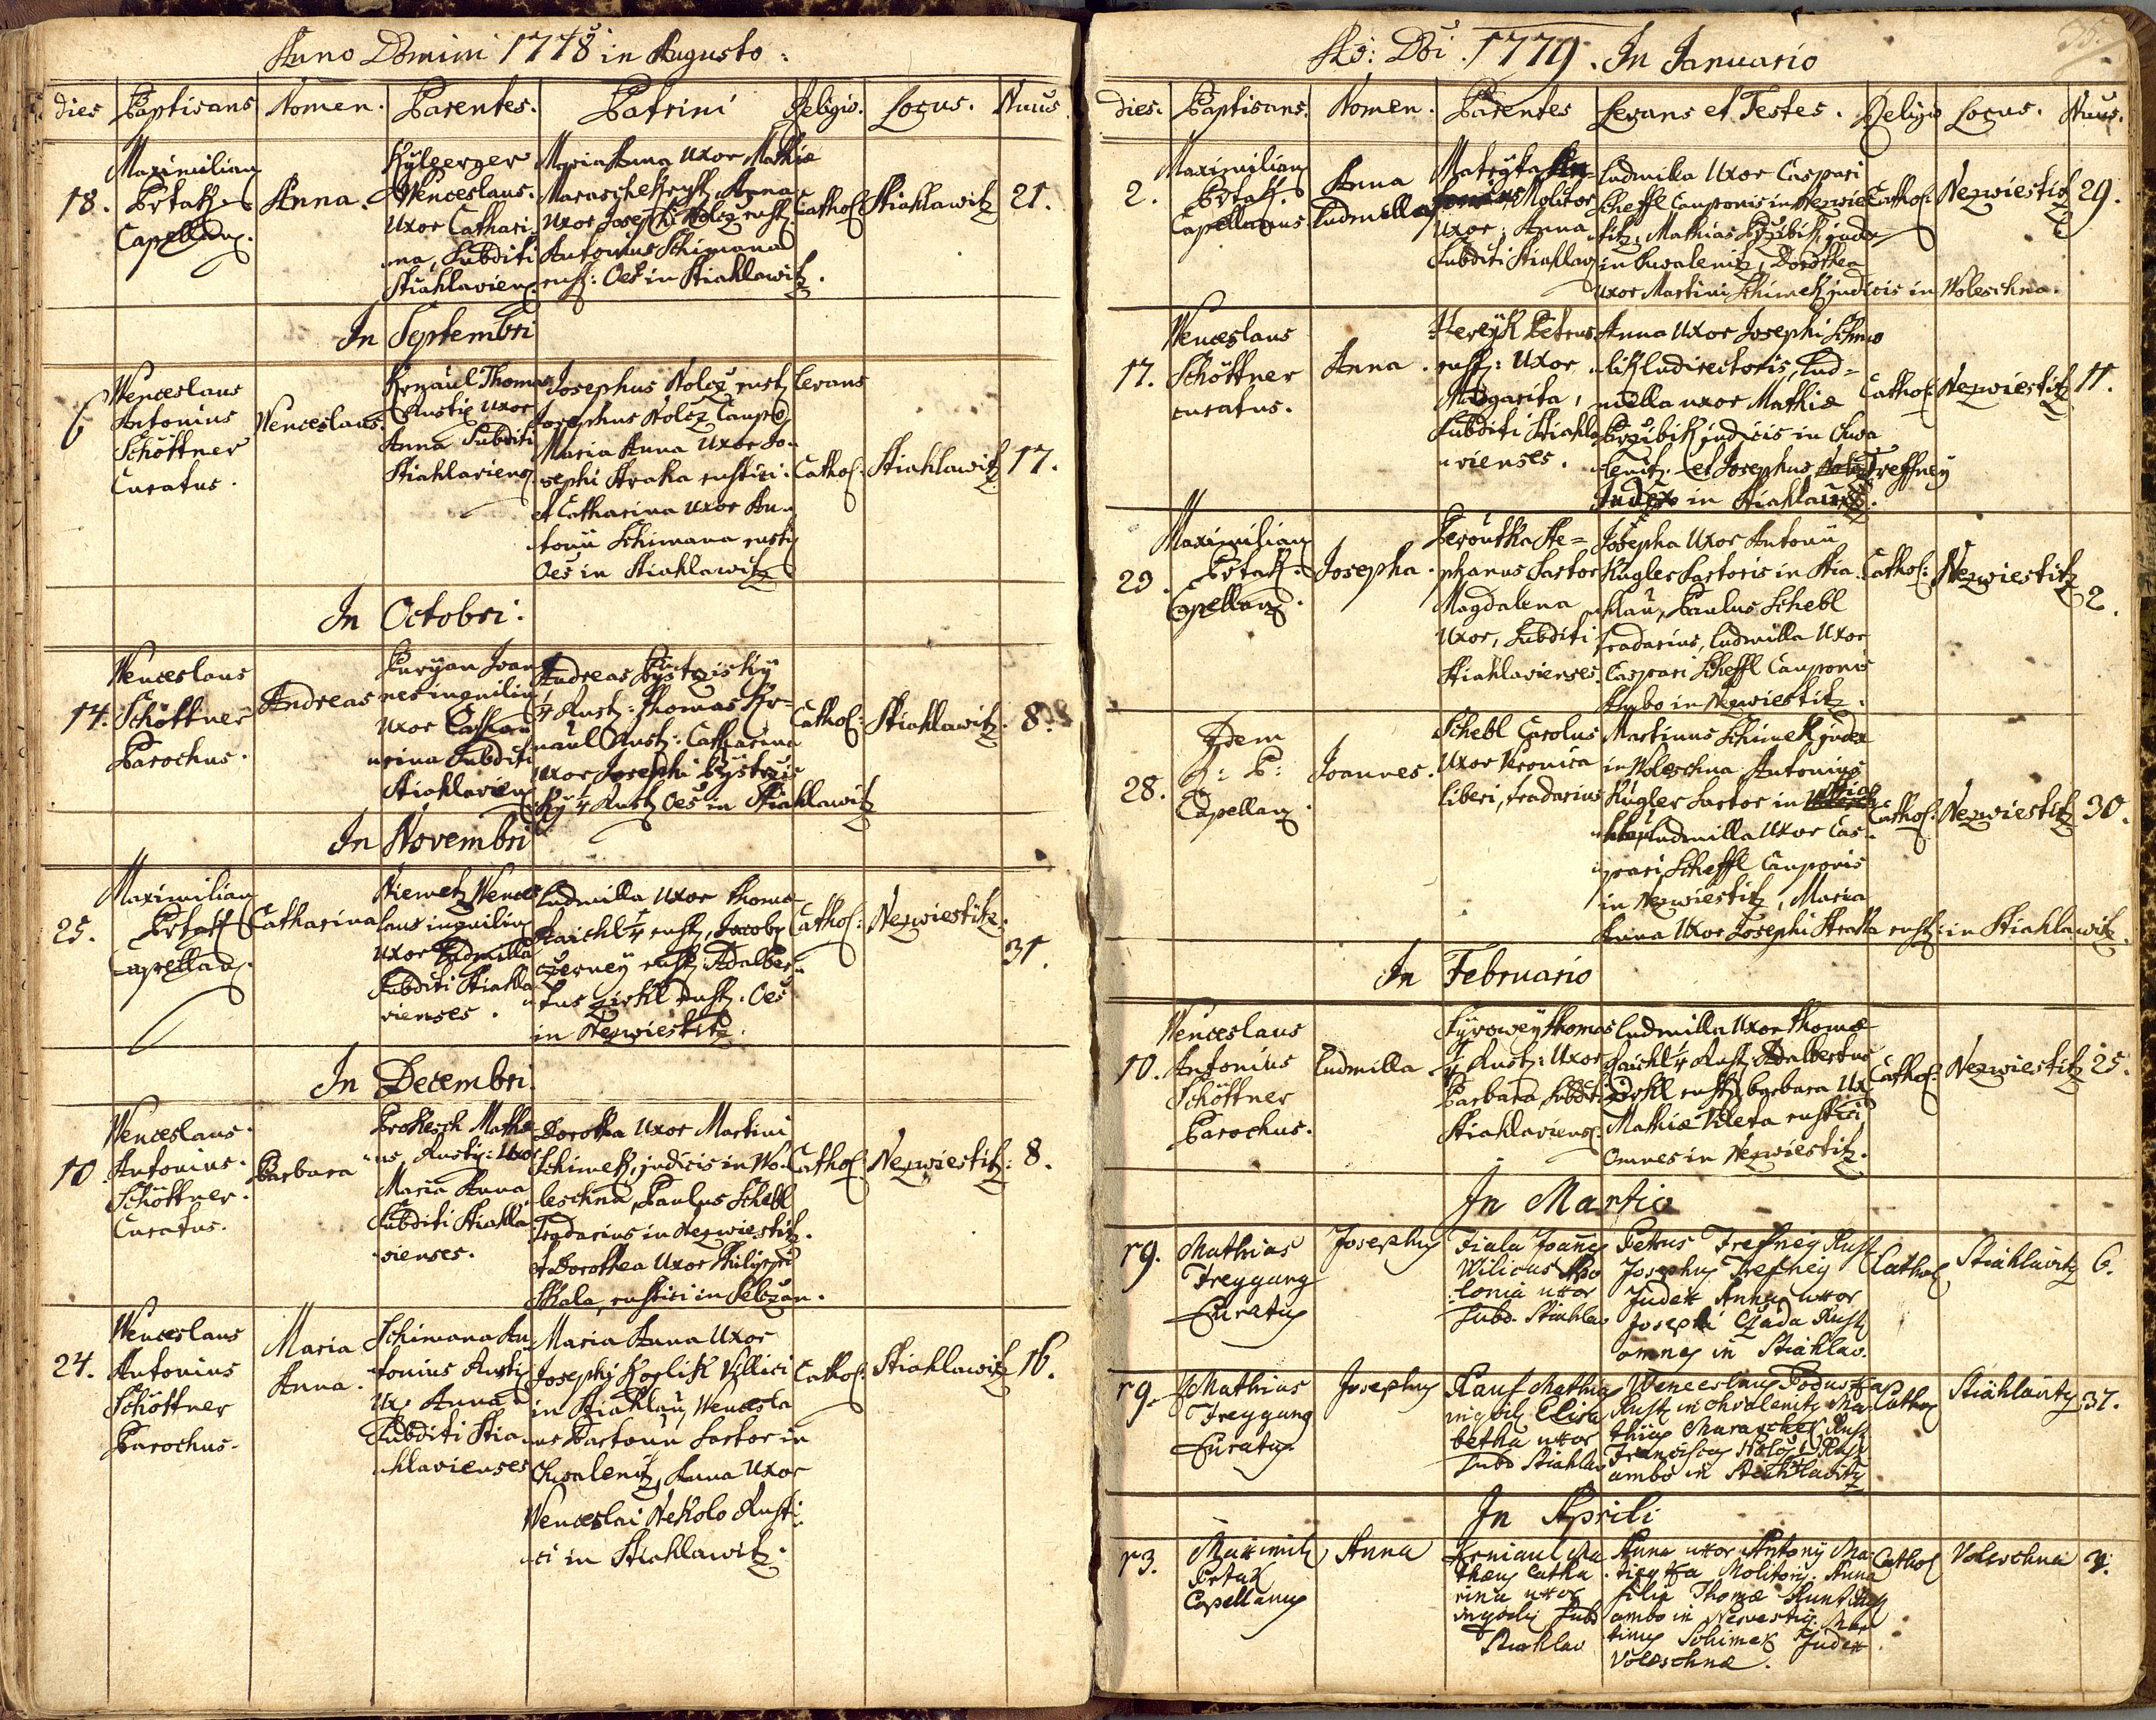 Anno Domini 1778 in Augusto:
dies Baptisans Nomen. Parentes. Patrini Religio. Locus. Nuus
18.
Maximilian
Brtak
Capellan9.
Anna.
Wenceslaus.
Uxor Cathari-
na, Subditi
Stiahlaviens.
Maria Anna Uxor Mathiæ
Maraschek rust, Anna
Uxor Josephi Nolcz rust
Antonius Schimana
rust: Oes in Stiahlawitz.
Cathol
Stiahlawitz
21.
In Septembri
6
Wenceslaus
Antonius
Schöttner
Curatus.
Wenceslaus.
Krnaul Thomas
Rustic Uxor
Anna Subditi
Stiahlaviens.
Josephus Nolcz rust Levans
Josephus Nolcz Caupo
Maria Anna Uxor Jo-
sephi Straka rustici.
et Catharina Uxor An-
tonii Schimana rust
Oes in Stiahlawitz
Cathol:
Stiahlawitz
17.
In Octobri:
14.
Wenceslaus
Schöttner
Parochus.
Andreas
Puryan Joan
nes inquilin
Uxor Catha-
rina Subditi
Stiahlaviens
Andreas Bystrzisky
1/4 Rust: Thomas Kr-
naul Rust: Catharina
Uxor Josephi Bystrzis
ky 1/4 Rust Oes in Stiahlawitz
Cathol:
Stiahlawitz.
8.
In Novembri
25.
Maximilian
Brtak
Capellan9.
Catharina
Niemetz Wences
laus inquilin
Uxor Ludmilla
Subditi Stiahla
vienses.
Ludmilla Uxor Thomæ
Raichl 1/4 rust, Jacobus
Czerney rust, Adalber-
tus zirkl rust. Oes
in Nezwiestitz.
Cathol:
Nezwiestitz.
31.
In Decembri.
10.
Wenceslaus.
Antonius.
Schöttner.
Curatus.
Barbara
Prokesch Mathi
as, Rustic: Uxor
Maria Anna
Subditi Stiahla
vienses.
Dorothea Uxor Martini
Schimek, judicis in Wo-
leschna, Paulus Schebl
Tradarius in Nezwiestitz.
et Dorothea Uxor Philippi
Skala, rustici in Sebczan.
Cathol:
Nezwiestitz:
8.
24.
Wenceslaus
Antonius
Schöttner
Parochus.
Maria
Anna.
Schimana An-
tonius Rusti
Ux: Anna
Subditi Stia-
hlavienses
Maria Anna Uxor
Josephi Koglik Villici
in Stiahlau, Wencesla
us Bartonn Sartor in
Chwalenitz, Anna Uxor
Wenceslai Nekolo Rusti-
ci in Stiahlawitz.
Cathol:
Stiahlawitz
16.
Ao: Doi. 1779. In Januario
dies. Baptisans. Nomen. Parentes Levans et Testes. Religio Locus. Nuus.
2.
Maximilian
Brtak.
Capellanus
Anna
Ludmilla
Matzka An-
tonius Molitor
Uxor: Anna
Subditi Stiahlav
Ludmilla Uxor Caspari
Scheffl Cauponis in Nezwies
titz, Mathias Przibik judex
in Chwalenitz, Dorothea
Uxor Martini Schimek judicis in Woleschna.
Cathol:
Nezwiestitz
29.
17.
Wenceslaus
Schöttner
curatus.
Anna.
Hereyk Petrus
rust: Uxor
Margarita,
Subditi Stiahla
vienses.
Anna Uxor Josephi Schmo
lik ludirectoris, Lud-
milla uxor Mathiæ
Przibik judicis in Chwa
lenitz. et Josephus Treffney
Judex in Stiahlawitz.
Cathol:
Nezwiestitz
11.
29.
Maximilian
Brtak.
Capellan9.
Josepha.
Peroutka Ste-
phanus Sartor
Magdalena
Uxor, Subditi
Stiahlavienses.
Josepha Uxor Antonii
Kugler Sartoris in Stia-
hlau, Paulus Schebl
Tradarius, Ludmilla Uxor
Caspari Scheffl Cauponis
Ambo in Nezwiestitz.
Cathol:
Nezwiestitz
2.
28.
Idem
Capellan9.
Joannes.
Schebl Carolus
Uxor Veronica
liberi, tradarius
Martinus Schimek judex
in Woleschna Antonius
Kugler Sartor in Stia
hlau Ludmilla Uxor Cas-
pari Scheffl Cauponis
in Nezwiestitz, Maria
Anna Uxor Josephi Straka rust: in Stiahlawitz.
Cathol:
Nezwiestitz
30.
In Februario
10.
Wenceslaus
Antonius
Schöttner
Parochus.
Ludmilla
Syrowey Thomas
1/4 Rust: Uxor
Barbara, Subditi
Stiahlaviens.
Ludmilla Uxor Thomæ
Raichl 1/4 Rust, Adalbertus
Zirkl rust, barbara Ux
Mathiæ Kleta rustici
Omnes in Nezwiestitz.
Cathol:
Nezwiestitz
25.
In Martio
19.
Mathias
Freygang
Curatus
Josephus
Fiala Joannes
Vilicus Apo
lonia uxor
Subd. Stiahlav
Petrus Trefney Rust
Josephus Trefney
Judex Anna uxor
Josephi Czada Rust
omnes in Stiahlav.
Cathol
Stiahlavitz
6.
19.
Mathias
Freygang
Curatus
Josephus
Rauf Mathias
inquil Elisa
betha uxor
Subd Stiahlav
Wenceslaus Poduska
Rust in Chvalenitz Ma
thias Maraschek Rust
Franciscus Nolcz Rust
ambo in Stiahlavitz
Cathol
Stiahlavitz
37.
In Aprili
13.
Maximil
Brtak
Capellanus
Anna
Krniaul Ma
thæus Catha
rina uxor
inquili Subd
Stiahlav
Anna uxor Antonii Ma
tizka Molitoris. Anna
filia Thomæ
ambo in Nezvestitz. Mar
tinus Schimek Judex
Voleschnæ.
Cathol
Voleschna